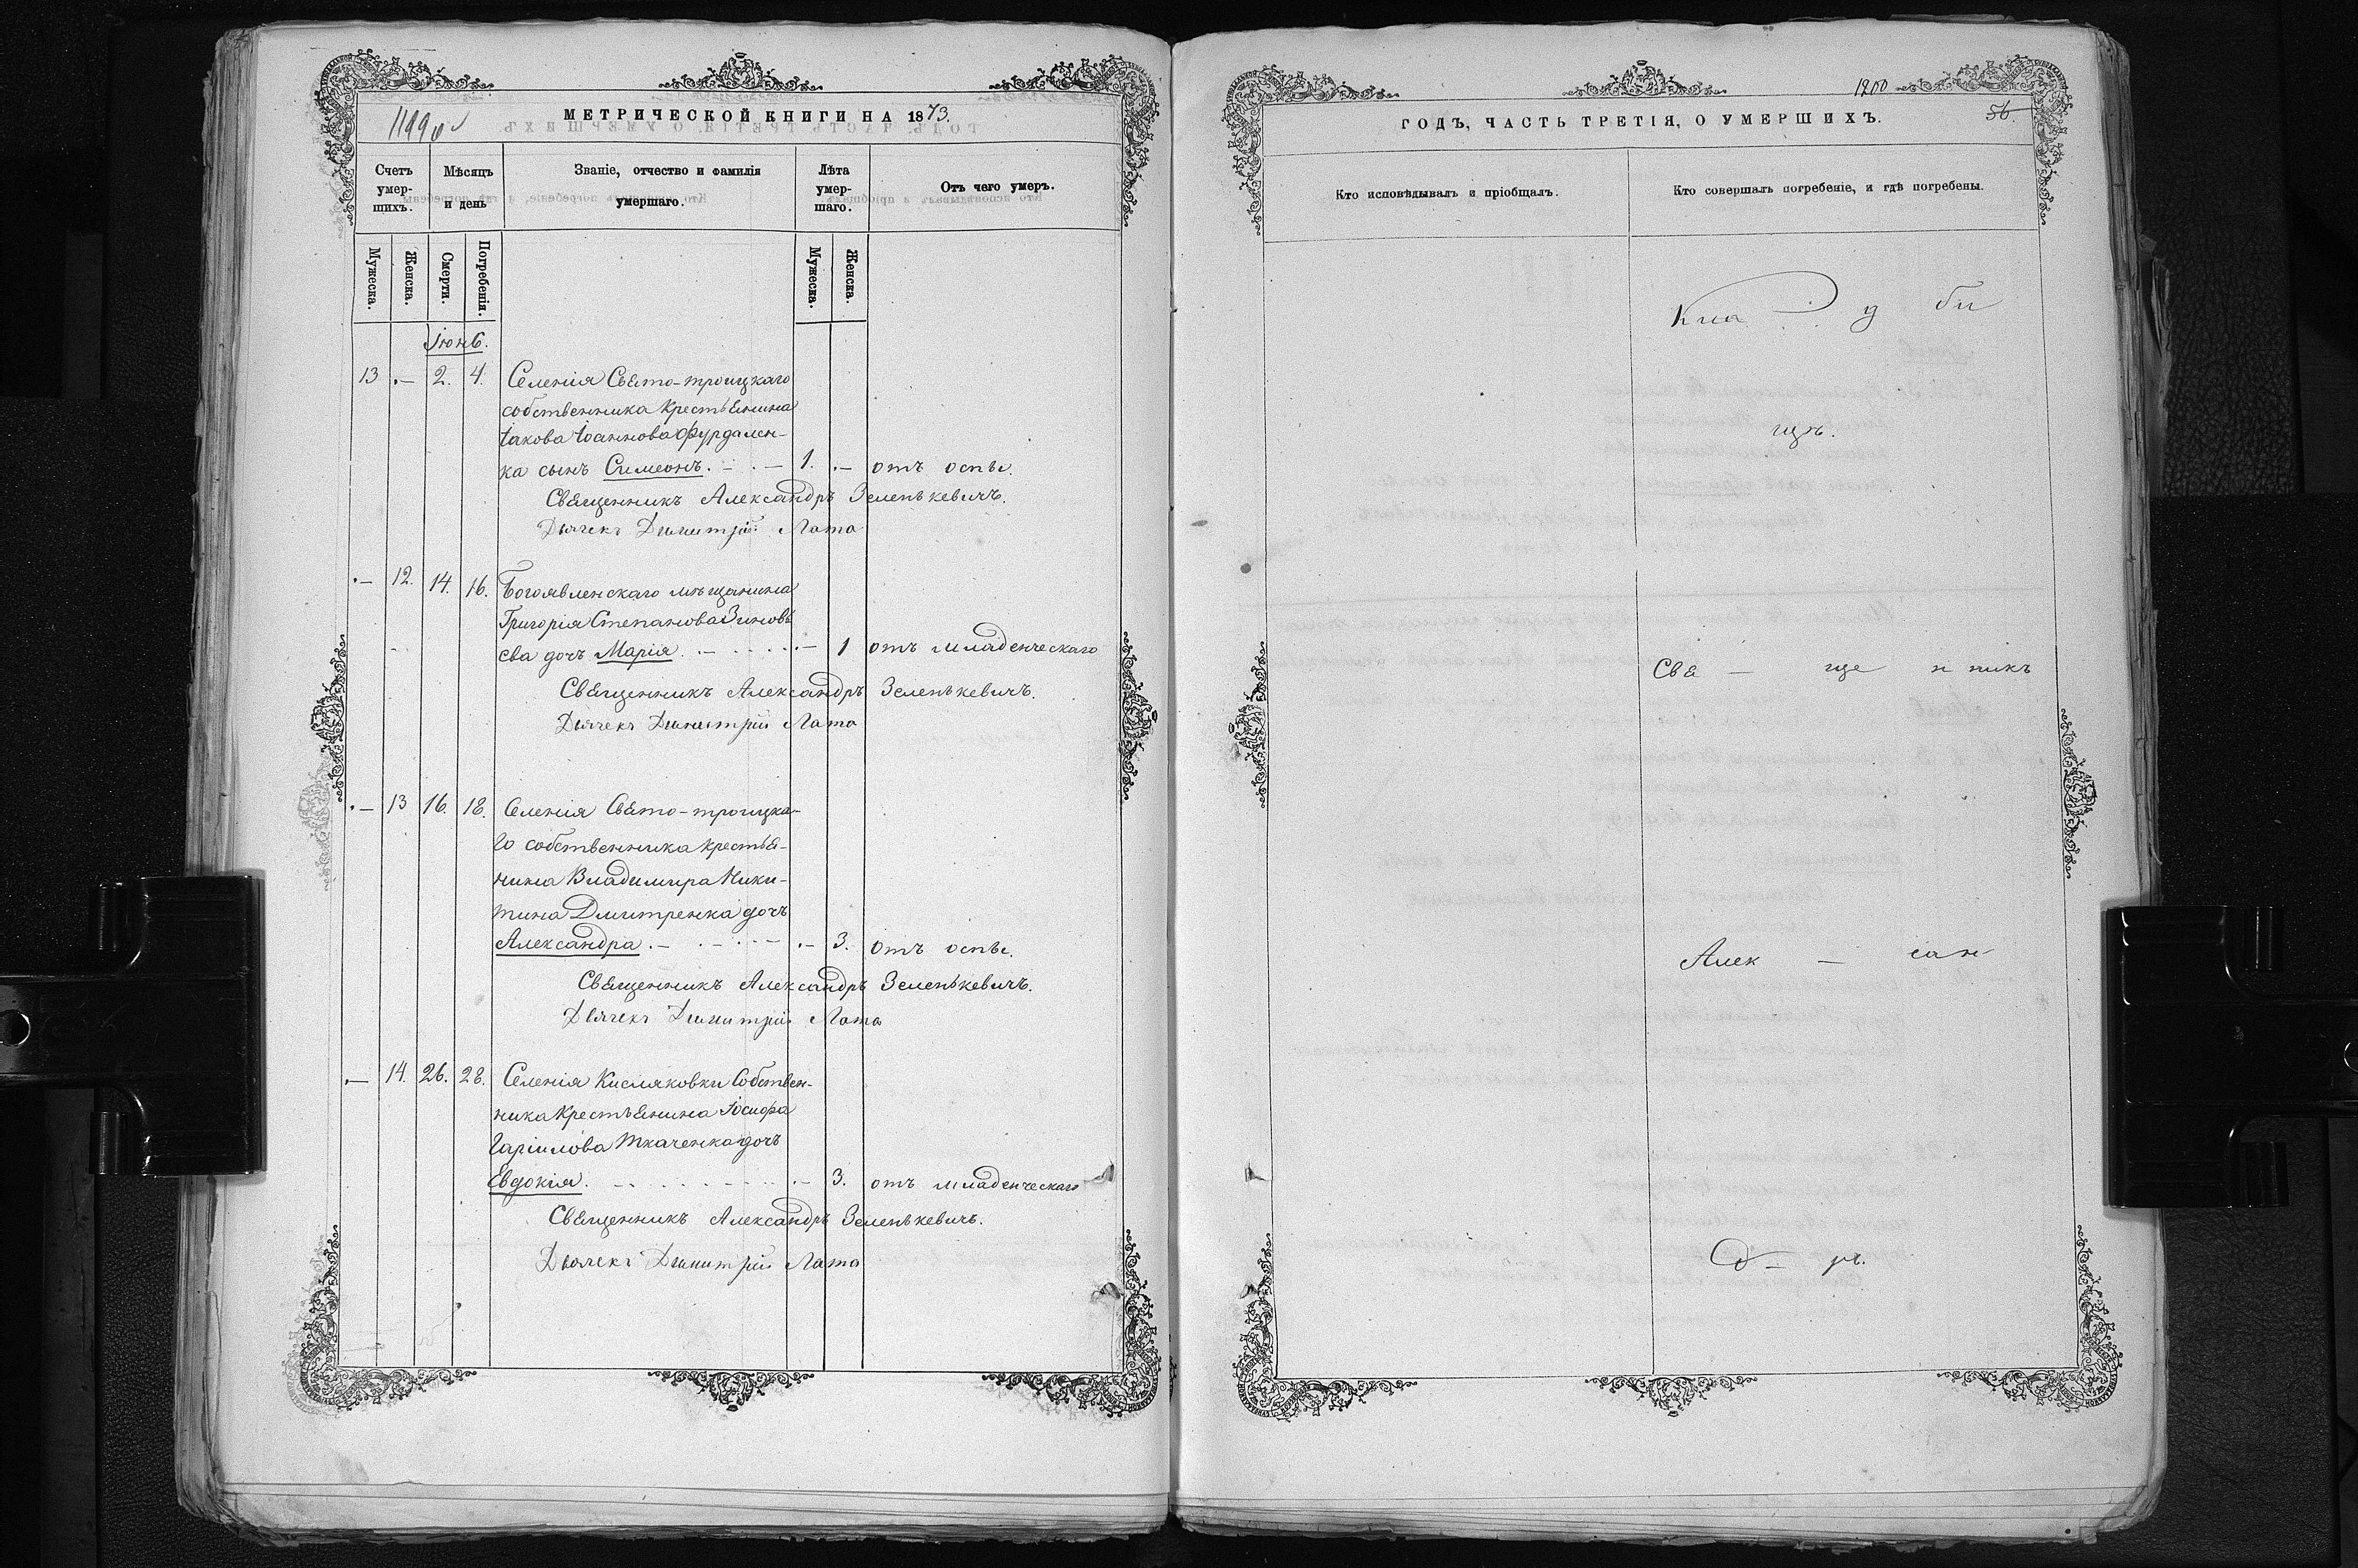 1199
МЕТРИЧЕСКОЙ КНИГИ НА 1873.
Счетъ умер-шихъ.
Мѣсяцъ и день
Званіе, отчество и фамилія умершаго.
Лѣта умер-шаго.
Отъ чего умеръ.
Мужеска.
Женска.
Смерти.
Погребенія.
Мужеска.
Женска.
Іюнь.
13 .— 2. 4. Селенія Свято-троицкаго
собственника крестьянина
Іакова Іоаннова Фурдален-
ка сынъ Симеонъ. 1. .— отъ оспы.
Священникъ Александръ Зеленькевичъ.
Дьячекъ Димитрій Лата
.— 12. 14. 16. Богоявленскаго мѣщанина
Григорія Степанова Зиновь
ева дочь Марія. .— 1 отъ младенческаго
Священникъ Александръ Зеленькевичъ.
Дьячекъ Димитрій Лата
.— 13 16. 18. Селенія Свято-троицка-
го собственника крестья-
нина Владимира Ники-
тина Дмитренка дочь
Александра .— .— 3. отъ оспы.
Священникъ Александръ Зеленькевичъ.
Дьячекъ Димитрій Лата
.— 14. 26. 28. Селенія Кисляковки Собствен-
ника крестьянина Іосифа
Гаріилова Ткаченка дочь
Евдокія. .— 3. отъ младенческаго
Священникъ Александръ Зеленькевичъ.
Дьячекъ Димитрій Лата
1200
56.
ГОДЪ, ЧАСТЬ ТРЕТІЯ, О УМЕРШИХЪ.
Кто исповѣдывалъ и пріобщалъ.
Кто совершалъ погребеніе, и гдѣ погребены.
Кла д би
щѣ.
Свя — ще н никъ
Алек — сан
д — ръ.